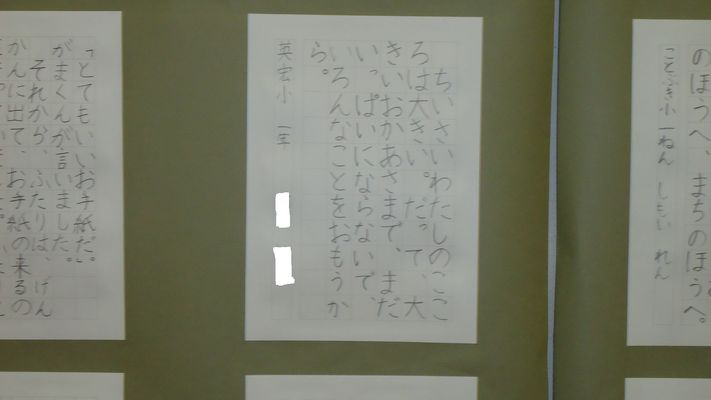 のほうへ、まちのほうへ。
ことぶき小 一ねん しもい れん
ちいさいわたしのここ
ろは大きい。だって、大
きいおかあさまで、まだ
いっぱいにならないで、
いろんなことをおもうか
ら。
英宏小 一年
「とてもいいお手紙だ。」
がまくんが言いました。
それから、ふたりは、げん
かんに出て、お手紙の来るの